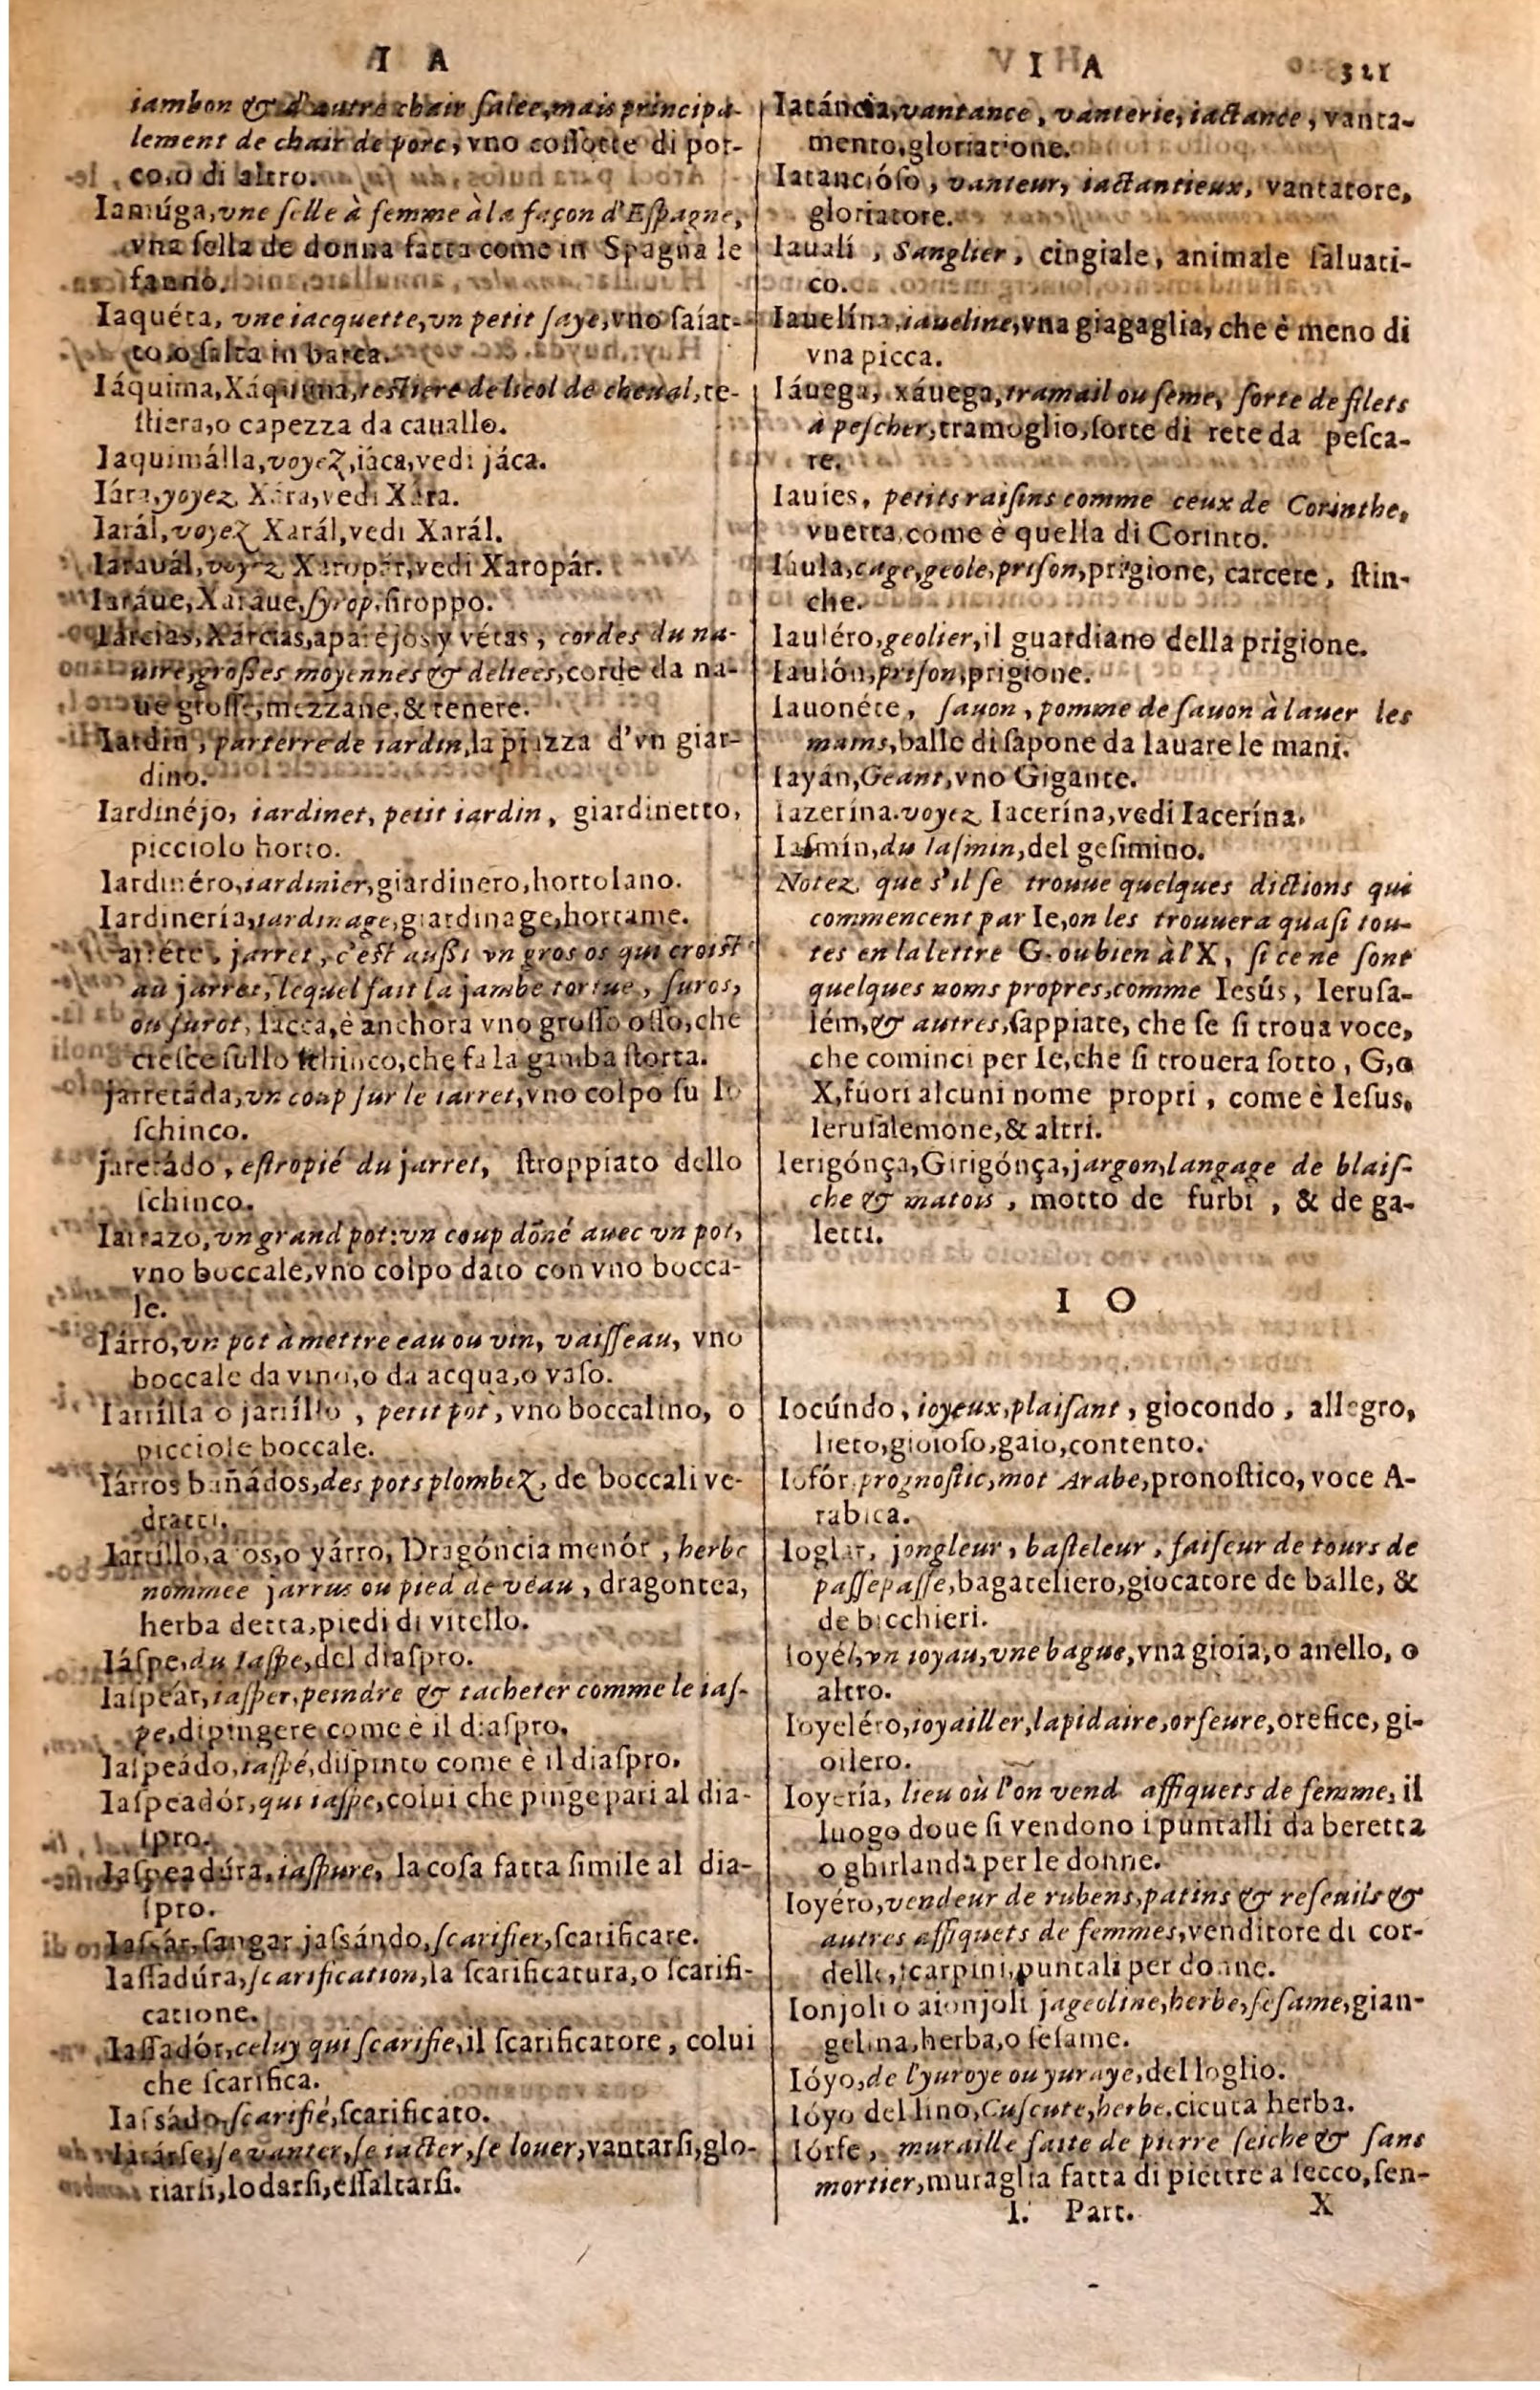 I A
iambon & d'autre chair salee, mais principa-
lement de chair de porc, vno cossotte di por-
co, o di altro.
Iamúga, vne selle à femme à la façon d'Espagne,
vna sella de donna fatta come in Spagna le
fanno.
Iaquéta, vne iacquette, vn petit saye, vno saíat-
to, o salta in barca.
Iáquima, Xáquima, testiere de licol de cheual, te-
stiera, o capezza da cauallo.
Iaquimálla, voyez, iáca, vedi jáca.
Iára, voyez Xára, vedi Xára.
Iarál, voyez Xarál, vedi Xarál.
Iarauál, voyez Xaropár, vedi Xaropár.
Iaráue, Xaráue, syrop, siroppo.
Iárcias, Xárcias, aparejos y vétas, cordes du na-
uire, grosses moyennes & deliees, corde da na-
ue grosse, mezzane, & tenere.
Iardin, parterre de iardin, la piazza d'vn giar-
dino.
Iardinéjo, iardinet, petit iardin, giardinetto,
picciolo horto.
Iardinéro, iardinier, giardinero, hortolano.
Iardinería, iardinage, giardinage, hortame.
arréte, jarret, c'est aussi vn gros os qui croist
au jarret, lequel fait la jambe tortue, suros,
ou surot, lacca, è anchora vno grosso osso, che
cresce sullo schinco, che fa la gamba storta.
jarretáda, vn coup sur le iarret, vno colpo su lo
schinco.
jaretádo, estropié du jarret, stroppiato dello
schinco.
Iarrazo, vn grand pot: vn coup dõné auec vn pot,
vno boccale, vno colpo dato con vno bocca-
le.
Iárro, vn pot à mettre eau ou vin, vaisseau, vno
boccale da vino, o da acqua, o vaso.
Iarrílla o jarríllo, petit pot, vno boccalino, o
picciole boccale.
Iárros bañádos, des pots plombez, de boccali ve-
dratti.
Iarríllo, a os, o yárro, Dragóncia menór, herbe
nommee jarrus ou pied de veau, dragontea,
herba detta, piedi di vitello.
Iáspe, du Iaspe, del diaspro.
Iaspeár, iasper, peindre & tacheter comme le ias-
pe, dipingere come è il diaspro.
Iaspeádo, iaspé, dispinto come è il diaspro.
Iaspeadór, qui iaspe, colui che pinge pari al dia-
spro.
Iaspeadúra, iaspure, la cosa fatta simile al dia-
spro.
Iassár, sangar jassándo, scarifier, scarificare.
Iassadúra, scarification, la scarificatura, o scarifi-
catione.
Iassadór, celuy qui scarifie, il scarificatore, colui
che scarifica.
Iassádo, scarifié, scarificato.
Iatárse, se vanter, se iacter, se louer, vantarsi, glo-
riarsi, lodarsi, essaltarsi.
I A 321
Iatáncia, vantance, vanterie, iactance, vanta-
mento, gloriatione.
Iatancióso, vanteur, iactantieux, vantatore,
gloriatore.
Iaualí, Sanglier, cingiale, animale saluati-
co.
Iauelína, iaueline, vna giagaglia, che è meno di
vna picca.
Iáuega, xáuega, tramail ou seme, sorte de filets
à pescher, tramoglio, sorte di rete da pesca-
re.
Iauies, petits raisins comme ceux de Corinthe,
vuetta, come è quella di Corinto.
Iáula, cage, geole, prison, prigione, carcere, stin-
che.
Iauléro, geolier, il guardiano della prigione.
Iaulón, prison, prigione.
Iauonéte, sauon, pomme de sauon à lauer les
mains, balle di sapone da lauare le mani.
Iayán, Geant, vno Gigante.
Iazerína. voyez Iacerína, vedi Iacerína.
Iasmín, du Iasmin, del gesimino.
Notez que s'il se trouue quelques dictions qui
commencent par Ie, on les trouuera quasi tou-
tes en la lettre G. ou bien à l'X, si ce ne sont
quelques noms propres, comme Iesús, Ierusa-
lém, & autres, sappiate, che se si troua voce,
che cominci per Ie, che si trouera sotto, G, o
X, fúori alcuni nome propri, come è Iesus,
Ierusalemone, & altri.
Ierigónça, Girigónça, jargon, langage de blais-
che & matois, motto de furbi, & de ga-
letti.
I O
Iocúndo, ioyeux, plaisant, giocondo, allegro,
lieto, gioioso, gaio, contento.
Iofór, prognostic, mot Arabe, pronostico, voce A-
rabica.
Ioglar, jongleur, basteleur, faiseur de tours de
passepasse, bagateliero, giocatore de balle, &
de bicchieri.
Ioyél, vn ioyau, vne bague, vna gioia, o anello, o
altro.
Ioyeléro, ioyailler, lapidaire, orfeure, orefice, gi-
oilero.
Ioyería, lieu où l'on vend affiquets de femme, il
luogo doue si vendono i puntalli da beretta
o ghirlanda per le donne.
Ioyéro, vendeur de rubens, patins & reseuils &
autres affiquets de femmes, venditore di cor-
delle, scarpini, puntali per donne.
Ionjoli o aionjoli jageoline, herbe, sesame, gian-
gelina, herba, o sesame.
Ióyo, de l'yuroye ou yuraye, del loglio.
Ióyo del lino, Cuscute, herbe, cicuta herba.
Iórfe, muraille faite de pierre seiche & sans
mortier, muraglia fatta di piettre a secco, sen-
I. Part. X